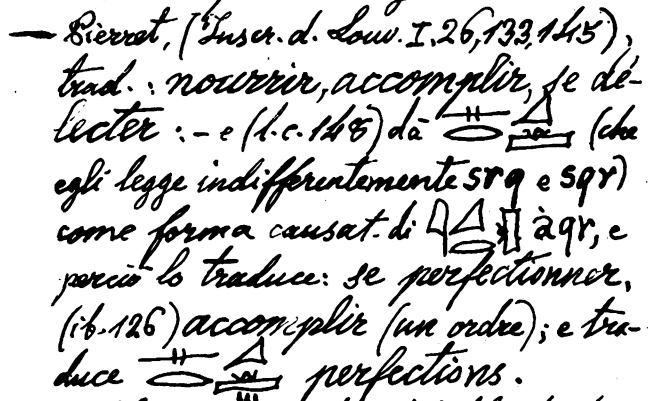 — Pierret, (Inscr. d. Louv. I, 26, 133, 145),
trad.: nourrir, accomplir, se dé-
lecter : - e (l. c. 148) dà (che
egli legge indifferentemente srq e sqr)
come forma causat. di àqr, e
perciò lo traduce: se perfectionner,
(ib. 126) accomplir (un ordre); e tra-
duce perfections.